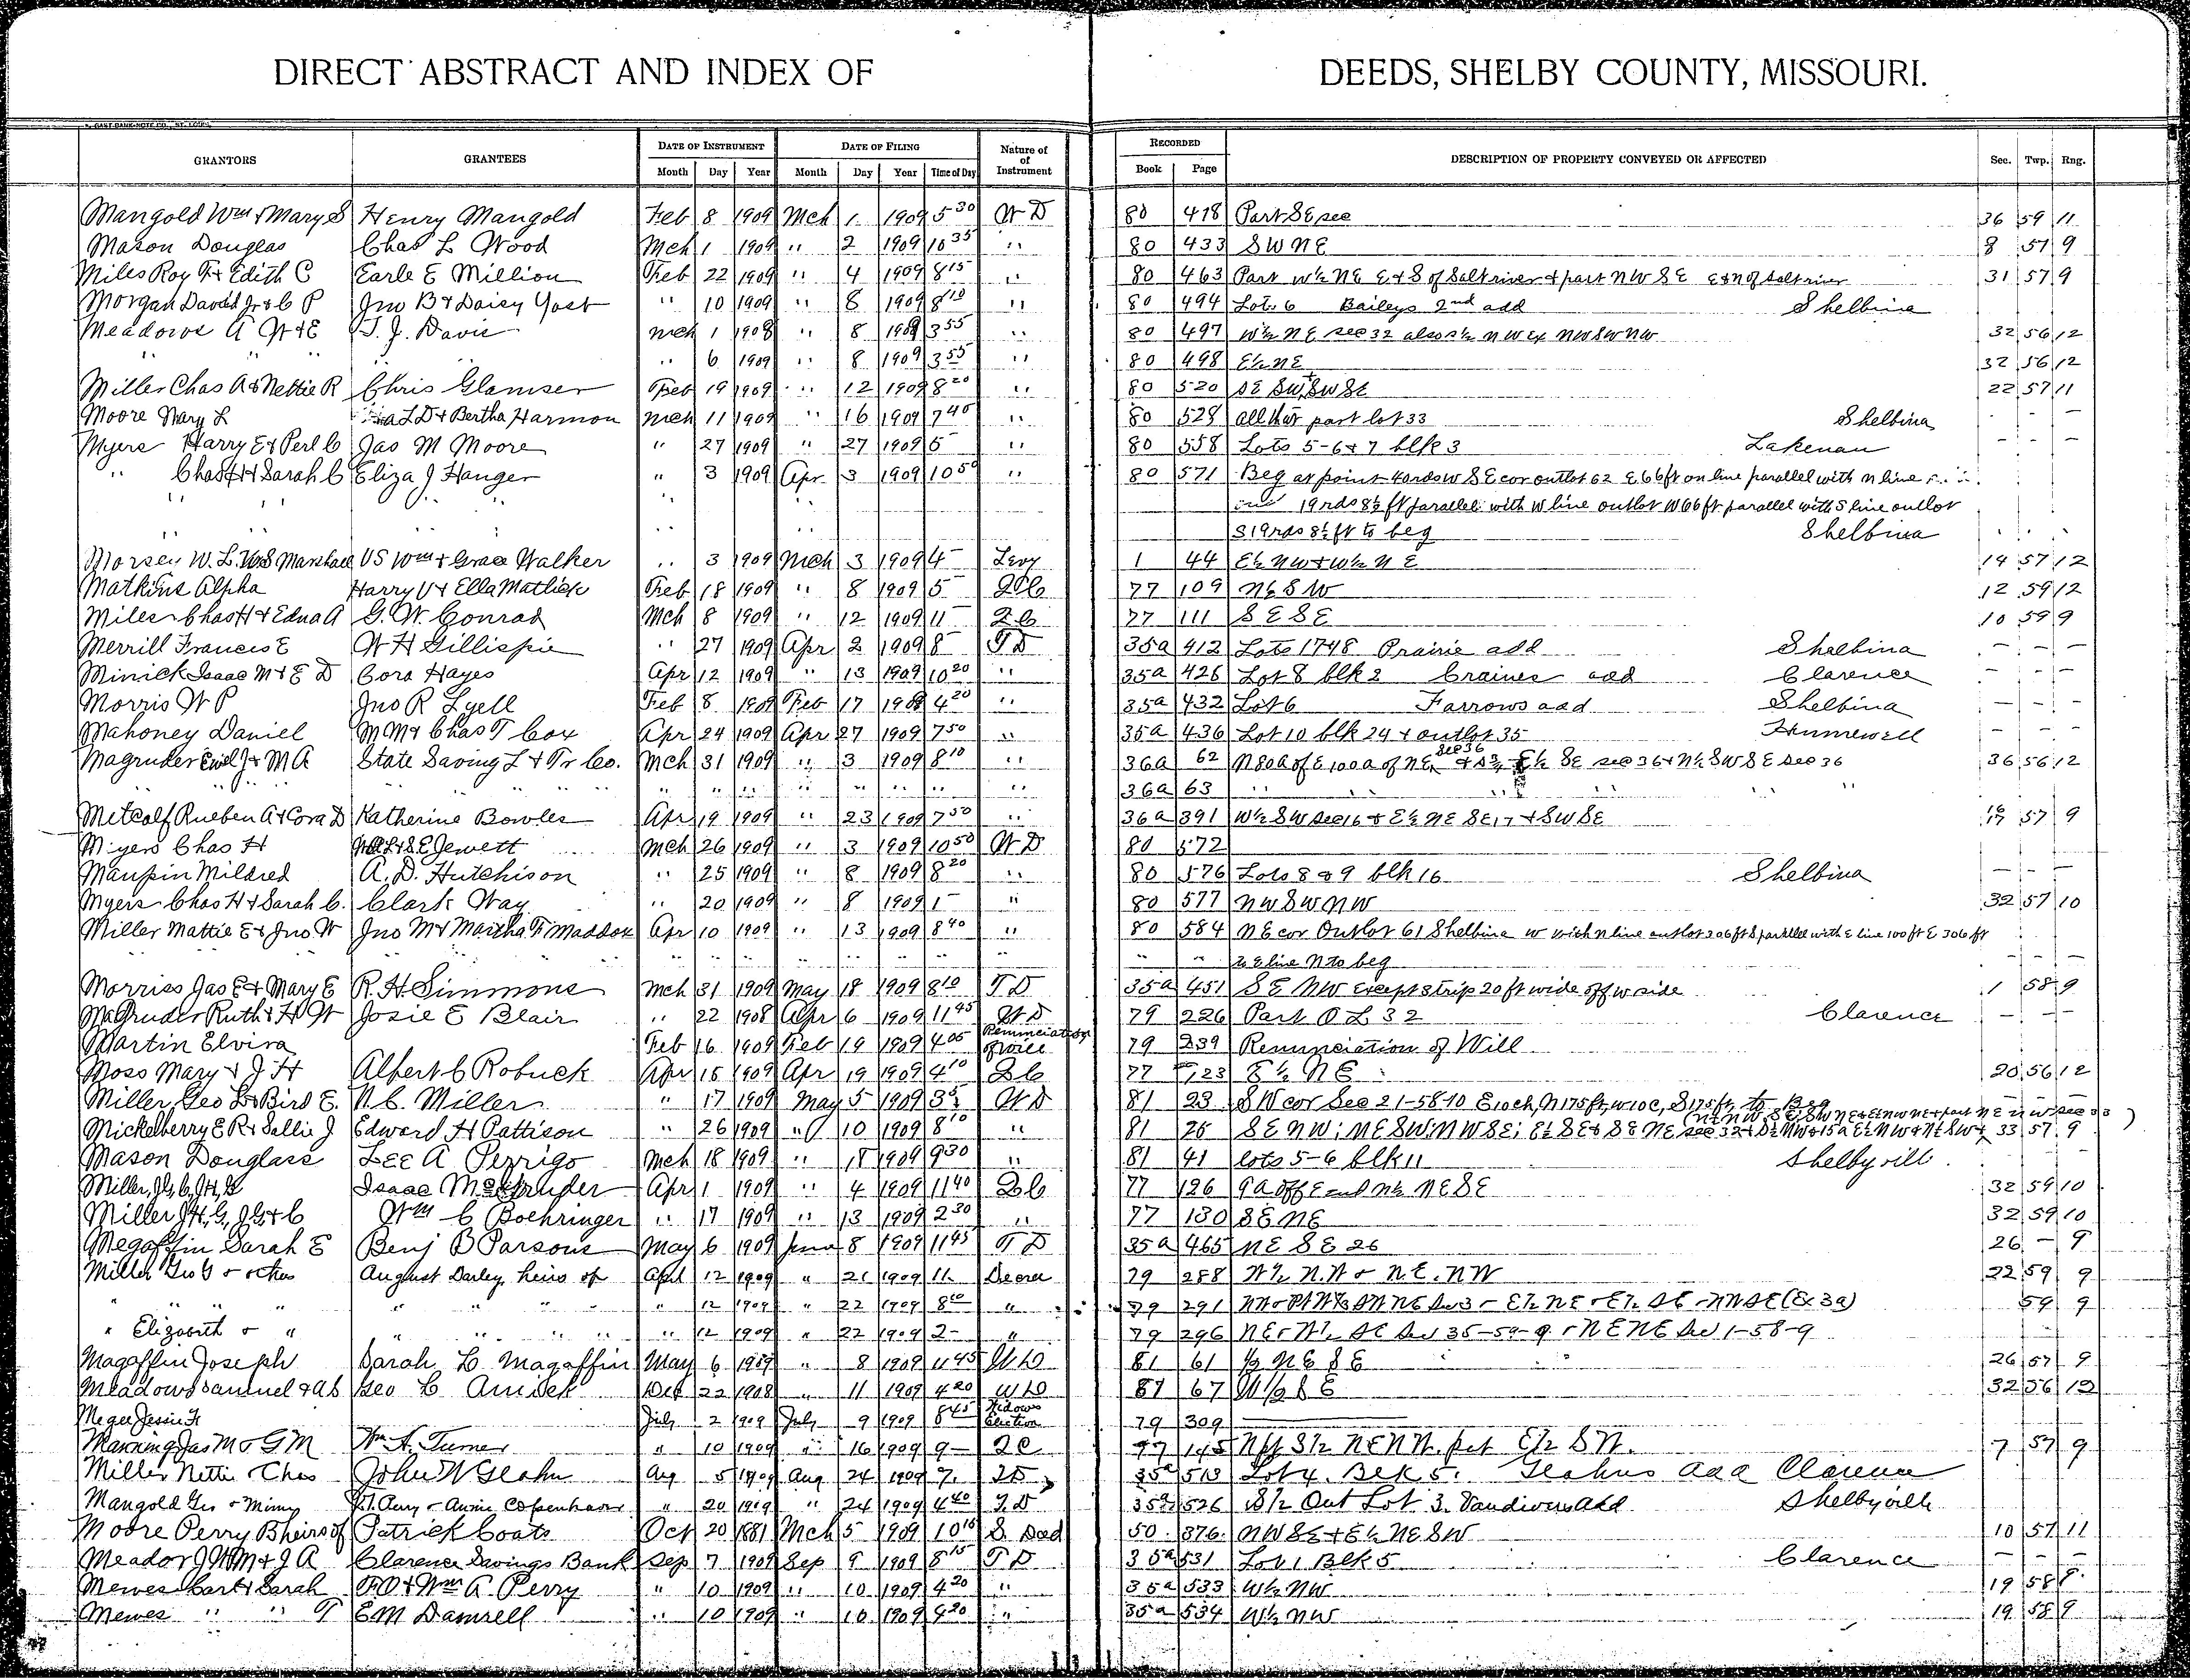 DIRECT ABSTRACT AND INDEX OF DEEDS, SHELBY COUNTY, MISSOURI.
GRANTORS GRANTEES DATE OF INSTRUMENT DATE OF FILING Nature of of Instrument RECORDED DESCRIPTION OF PROPERTY CONVEYED OR AFFECTED Sec. Twp. Rng.
Month Day Year Month Day Year Time of Day Book Page
Mangold Wm & Mary S Henry Mangold Feb 8 1909 Mch 1 1909 5 30 W D 80 418 Part SE sec 36 59 11
Mason Douglas Chas L Wood Mch 1 1909 " 2 1909 10 35 " 80 433 SW NE 8 57 9
Miles Roy F & Edith C Earle E Million Feb 22 1909 " 4 1909 8 15 " 80 463 Part W½ NE E & S of Salt river & part NW SE E & N of Salt river 31 57 9
Morgan David Jr & C P Jno B & Daisy Yost " 10 1909 " 8 1909 8 10 " 80 494 Lot 6 Baileys 2nd add Shelbina
Meadows A W & E T. J. Davis Mch 1 1908 " 8 1909 3 55 " 80 497 W½ NE sec 32 also S½ NW Ex NW SW NW 32 56 12
" " " " " 6 1909 " 8 1909 3 55 " 80 498 E½ NE 32 56 12
Miller Chas A & Nettie R Chris Glamser Feb 19 1909 " 12 1909 8 20 " 80 520 SE SW, SW SE 22 57 11
Moore Mary L L D & Bertha Harmon Mch 11 1909 " 16 1909 7 40 " 80 528 all that part lot 33 Shelbina - -
Myers Harry E & Perl C Jas M Moore " 27 1909 " 27 1909 5 - " 80 558 Lots 5-6 & 7 blk 3 Lakenan - - -
" Chas H & Sarah C Eliza J Hanger " 3 1909 Apr 3 1909 10 50 " 80 571 Beg at point 40rds W SE cor outlot 62 E 66 ft on line parallel with N line
" " " " " " 19 rds 8½ ft parallel with W line outlot W 66 ft parallel with S line outlot
" " " " " " S 19 rds 8½ ft to beg Shelbina
Morsey W. L. U.S. Marshall US Wm & Grace Walker " 3 1909 Mch 3 1909 4 - Levy 1 44 E½ NW & W½ NE 14 57 12
Matkins Alpha Harry V & Ella Matlick Feb 18 1909 " 8 1909 5 - Q C 77 109 NE SW 12 59 12
Miles Chas H & Edna A G. W. Conrad Mch 8 1909 " 12 1909 11 - Q C 77 111 SE SE 10 59 9
Merrill Francis E W H Gillispie " 27 1909 Apr 2 1909 8 - T D 35a 412 Lots 1748 Prairie add Shelbina - - -
Minick Isaac M & E D Cora Hayes Apr 12 1909 " 13 1909 10 20 " 35a 426 Lot 8 blk 2 Craines add Clarence - - -
Morris W P Jno R Lyell Feb 8 1909 Feb 17 1909 4 20 " 35a 432 Lot 6 Farrows add Shelbina - - -
Mahoney Daniel M M & Chas T Cox Apr 24 1909 Apr 27 1909 7 50 " 35a 436 Lot 10 blk 24 & outlot 35 Hunnewell - - -
Magruder Ewel J & M A State Saving L & Tr Co. Mch 31 1909 " 3 1909 8 10 " 36a 62 N 80a of E 100a of NE sec 36 & S½ E½ SE sec 36 & N½ SW SE Sec 36 36 56 12
" " " " " " " " " " " 36a 63 " " " " " "
Metcalf Rueben A & Cora D Katherine Bowles Apr 19 1909 " 23 1909 7 50 " 36a 391 W½ SW Sec 16 & E½ NE SE 17 & SW SE 16 17 57 9
Myers Chas H Jewett Mch 26 1909 " 3 1909 10 50 W D 80 572
Maupin Mildred A. D. Hutchison " 25 1909 " 8 1909 8 20 " 80 576 Lots 8 & 9 blk 16 Shelbina - - -
Myers Chas H & Sarah C. Clark Way " 20 1909 " 8 1909 1 - " 80 577 NW SW NW 32 57 10
Miller Mattie E & Jno W Jno M & Martha F Maddox Apr 10 1909 " 13 1909 8 40 " 80 584 NE cor Outlot 61 Shelbina W with N line outlot 306 ft S parallel with E line 100 ft E 306 ft
" " " " " " " " " " to E line N to beg - - -
Morriss Jas E & Mary E R. H. Simmons Mch 31 1909 May 18 1909 8 10 T D 35a 451 SE NW Except strip 20 ft wide off W side 1 58 9
Magruder Ruth & H W Josie E Blair " 22 1908 Apr 6 1909 11 45 W D 79 226 Part O L 32 Clarence - - -
Martin Elvira Feb 16 1909 Feb 19 1909 4 05 Renunciation of Will 79 239 Renunciation of Will
Moss Mary & J H Albert C Robuck Apr 15 1909 Apr 19 1909 4 10 Q C 77 123 E½ NE 20 56 12
Miller Geo L & Bird E. N. C. Miller " 17 1909 May 5 1909 3 W D 81 23 SW cor Sec 21-58-10 E 10 ch, N 175 ft, W 10 C, S 175 ft to Beg
Mickelberry E R & Sallie J Edward H Pattison " 26 1909 " 10 1909 8 10 " 81 25 SE NW; NE SW; NW SE; E½ SE & SE NE sec 32 33 57 9
Mason Douglass Lee A Perrigo Mch 18 1909 " 18 1909 9 30 " 81 41 lots 5-6 blk 11 Shelbyvill
Miller, J G, C, J H, G Isaac Magruder Apr 1 1909 " 4 1909 11 40 Q C 77 126 9 A off E end N½ NE SE 32 59 10
Miller J H, G, J G & C Wm C Boehringer " 17 1909 " 13 1909 2 30 " 77 130 SE NE 32 59 10
Megaffin Sarah E Benj B Parsons May 6 1909 June 8 1909 11 45 T D 35a 465 NE SE 26 26 - 9
Miller Geo G & others August Darley, heirs of April 12 1909 " 21 1909 11 - Decree 79 288 W½ N.W & N.E. NW 22 59 9
" " " " " " " " 12 1909 " 22 1909 8 10 " 79 291 E½ NE & E½ SE - NW SE (Ex 3a) 59 9
" Elizabeth & " " " " " " 12 1909 " 22 1909 2 - " 79 296 NE & W½ SE Sec 35-59-9 & NE NE Sec 1-58-9
Magaffin Joseph Sarah E Magaffin May 6 1909 " 8 1909 11 45 W D 81 61 ½ NE SE 26 57 9
Meadows Samuel & A S Geo C Amick Dec 22 1908 " 11 1909 4 20 W D 81 67 W½ SE 32 56 12
Megee Jessie F July 2 1909 July 9 1909 8 45 Widows Election 79 309
Manning Jas M & G M Wm A. Turner " 10 1909 " 16 1909 9 - Q C 77 145 N pt S½ NE NW. pt E½ SW. 7 57 9
Miller Nettie & Chas John W Glahn Aug 5 1909 Aug 24 1909 7. T D 35a 513 Lot 4. Blk 5. Glahns Add Clarence
Mangold Geo & Minny Perry & Annie Copenhaver " 20 1909 " 24 1909 4 40 T.D 35a 526 S½ Out Lot 3. Vandivers Add Shelbyville
Moore Perry B heirs of Patrick Coats Oct 20 1881 Mch 5 1909 10 15 S. Deed 50 376 NW SE & E½ NE SW 10 57 11
Meador J W M & J A Clarence Savings Bank Sep 7 1909 Sep 9 1909 8 15 T D 35a 531 Lot 1 Blk 5 Clarence - - -
Mewes Carl & Sarah F O & Wm A. Perry " 10 1909 " 10 1909 4 20 " 35a 533 W½ NW 19 58 9
Mewes " " T E M Damrell " 10 1909 " 10 1909 4 20 " 35a 534 W½ NW 19 58 9